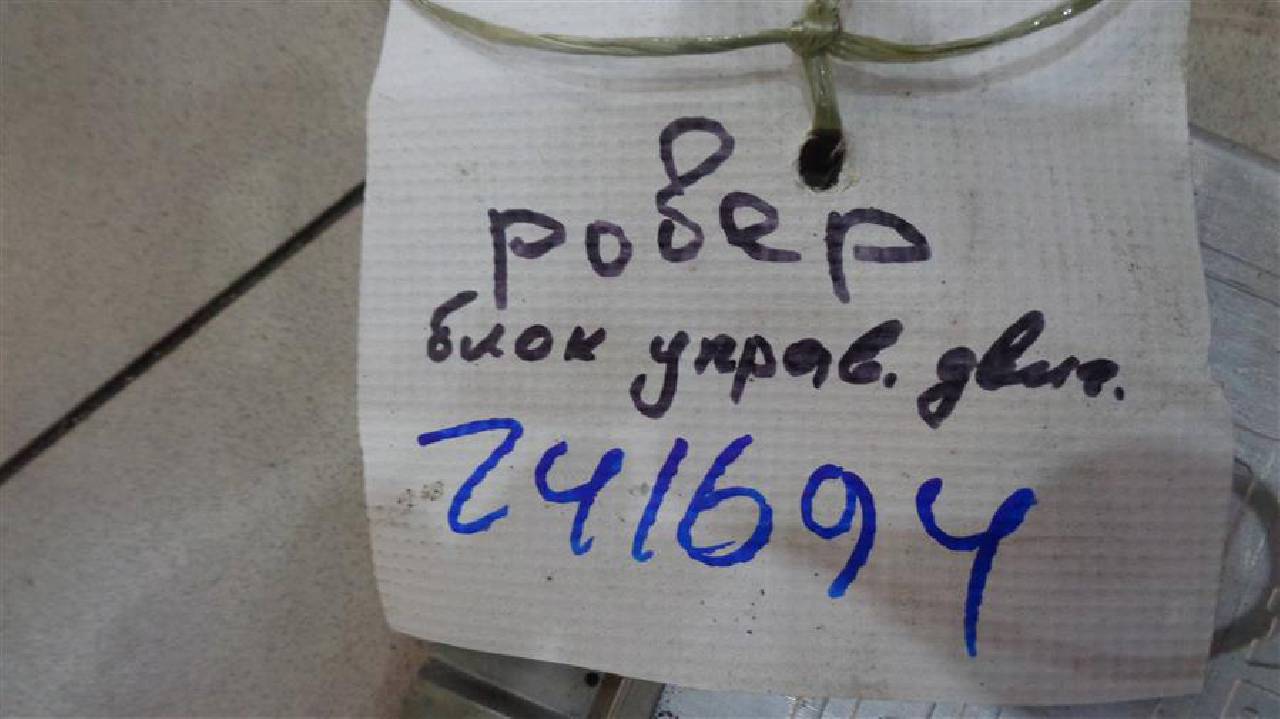 ровер
блок управ. двиг.
241694